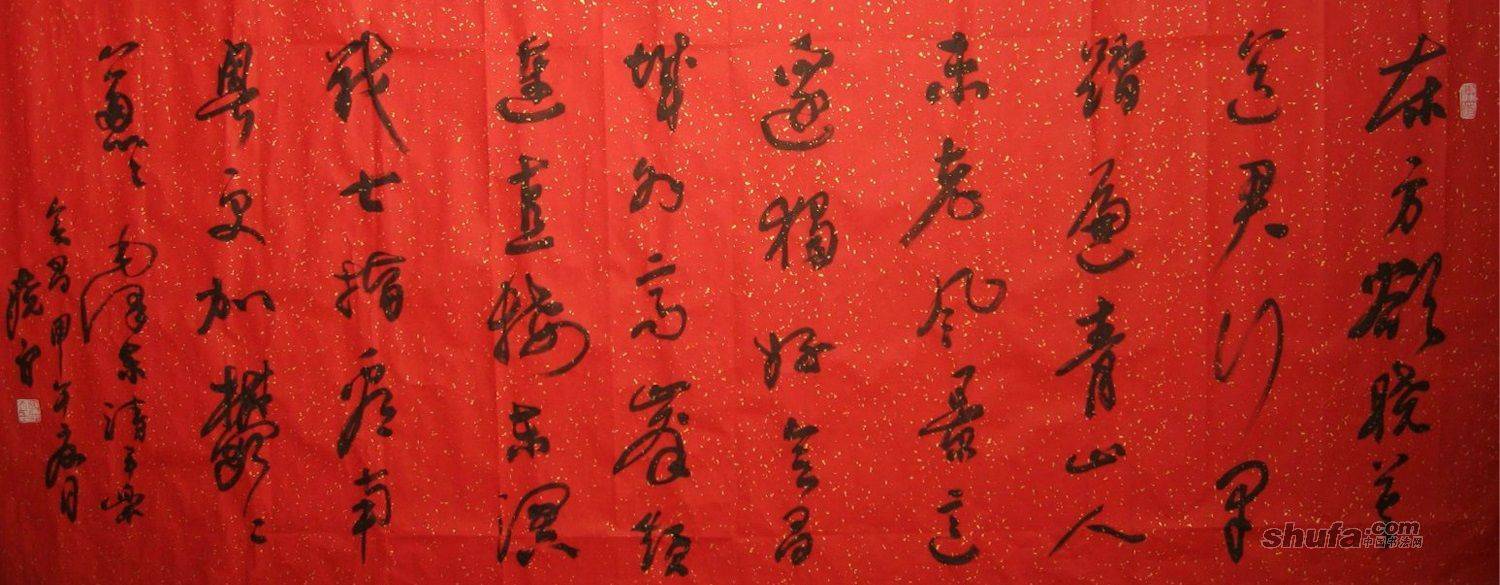 东方欲晓莫
道君行早
踏遍青山人
未老风景這
邊獨好会昌
城外高峰颠
連直接东溟
战士指看南
粤更加鬱〻
葱〻 毛泽东清平乐
会昌甲午
shufa.com
中国书法网